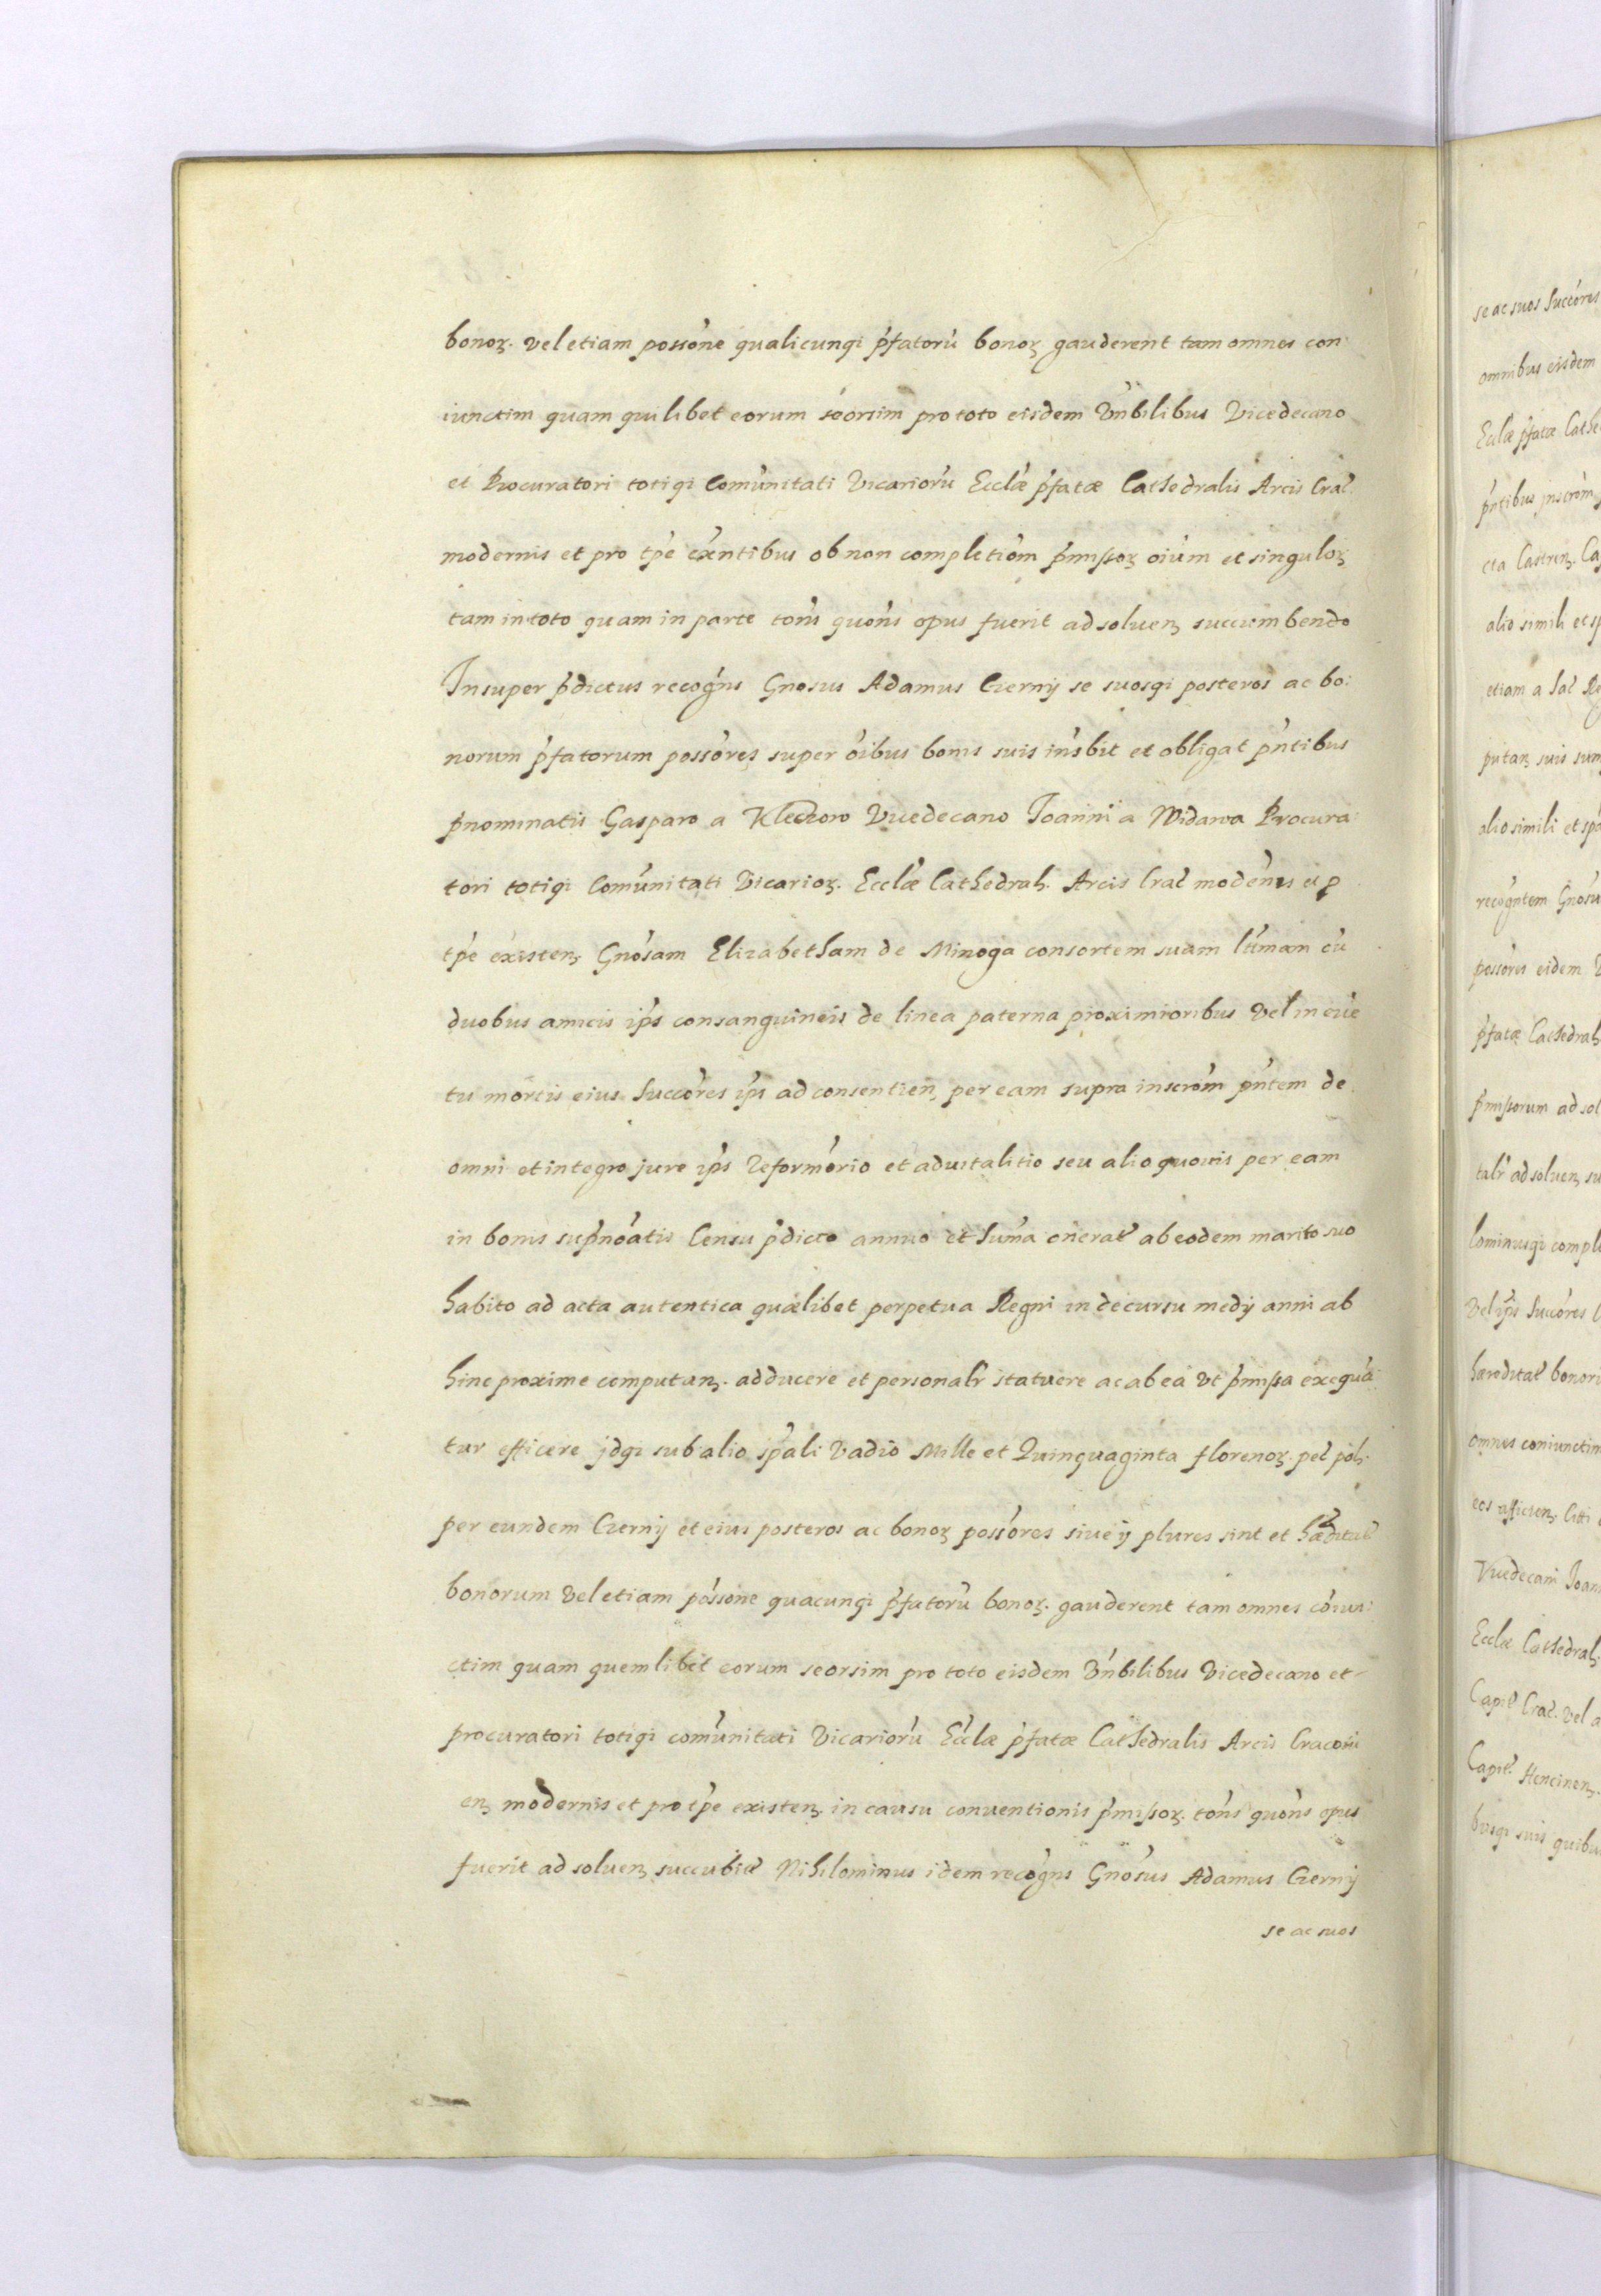 bonoꝝ. vel etiam possone qualicunqꝫ pfatorũ bonoꝝ gauderent tam omnes con:
iunctim quam quilibet eorum seorsim pro toto eisdem Vnbilibus Vicedecano
et Procuratori totiqꝫ Comunitati Vicariorũ Ecclæ pfatæ Cathedralis Arcis Crac.
modernis et pro tpe exntibus ob non completiom pmissoꝝ oium et singuloꝝ
tam in toto quam in parte tons quons opus fuerit ad soluenꝫ succumbendo
Insuper pdictus recogns Gnosus Adamus Czerny se suosqꝫ posteros ac bo:
norum pfatorum possores super oibus bonis suis insbit et obligat pntibus
pnominatis Gasparo a Kleczow Vicedecano Joanni a Widawa Procura:
tori totiqꝫ Comunitati Vicarioꝝ. Ecclæ Cathedralꝫ. Arcis Crac modernis et p
tpe existenꝫ Gnosam Elizabetham de Minoga consortem suam ltimam cũ
duobus amicis ips consanguineis de linea paterna proximioribus vel in euẽ
tu mortis eius Succores ips ad consentienꝫ per eam supra inscrom pntem de
omni et integro jure ips Reformorio et aduitalitio seu alio quouis per eam
in bonis supnoatis Censu pdicto annuo et Suma onerat ab eodem marito suo
habito ad acta autentica quælibet perpetua Regni in decursu medij anni ab
hinc proxime computanꝫ. adducere et personalr statuere ac ab ea vt pmissa exequã:
tur efficere jdqꝫ sub alio spali Vadio Mille et Quinquaginta florenoꝝ. pec polꝫ.
per eundem Czerny et eius posteros ac bonoꝝ possores siue ij plures sint et hæditate
bonorum vel etiam possone quacunqꝫ pfatorũ bonoꝝ. gauderent tam omnes coniun:
ctim quam quemlibet eorum seorsim pro toto eisdem Vnbilibus Vicedecano et
procuratori totiqꝫ comunitati Vicariorũ Ecclæ pfatæ Cathedralis Arcis Cracoui
enꝫ modernis et pro tpe existenꝫ. in causu conuentionis pmissoꝝ. tons quons opus
fuerit ad soluenꝫ succubit Nihilominus idem recogns Gnosus Adamus Czerny
se ac suos
se ac suos Succores
omnibus eisdem
Ecclæ pfatæ Cathe
pntibus inscrom
cta Castrenꝫ. Ca
alio simili et sp
etiam a
putanꝫ suis
alio simili et spa
recogntem Gnosu
possores eidem
pfatæ Cathedralꝫ
pmissorum ad sol
talr ad soluenꝫ su
lominusqꝫ comple
Vel ips Succores
hæreditat bonoru
omnes coniunctim
eos
Vicedecani Joan
Ecclæ Cathedralꝫ.
Capit Crac. vel a
Capit.
busqꝫ suis quibu